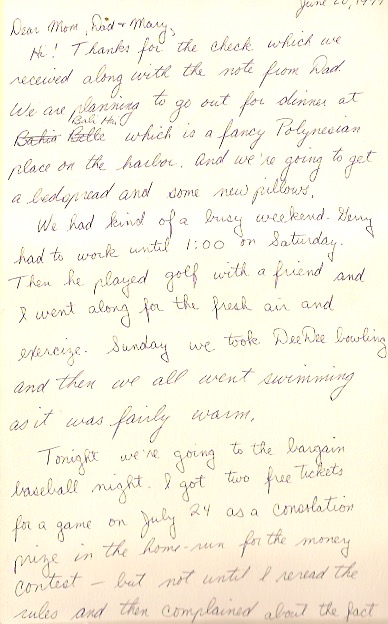 June 20, 19
Dear Mom, Dad + Mary,
Hi! Thanks for the check which we
received along with the note from Dad.
We are planning to go out for dinner at
Bali Hai
Bahia Belle which is a fancy Polynesian
place on the harbor. And we're going to get
a bedspread and some new pillows.
We had kind of a busy weekend. Gerry
had to work until 1:00 on Saturday.
Then he played golf with a friend and
I went along for the fresh air and
exercize. Sunday we took DeeDee bowling
and then we all went swimming
as it was fairly warm.
Tonight we're going to the bargain
baseball night. I got two free tickets
for a game on July 24 as a consolation
prize in the home-run for the money
contest – but not until I reread the
rules and then complained about the fact